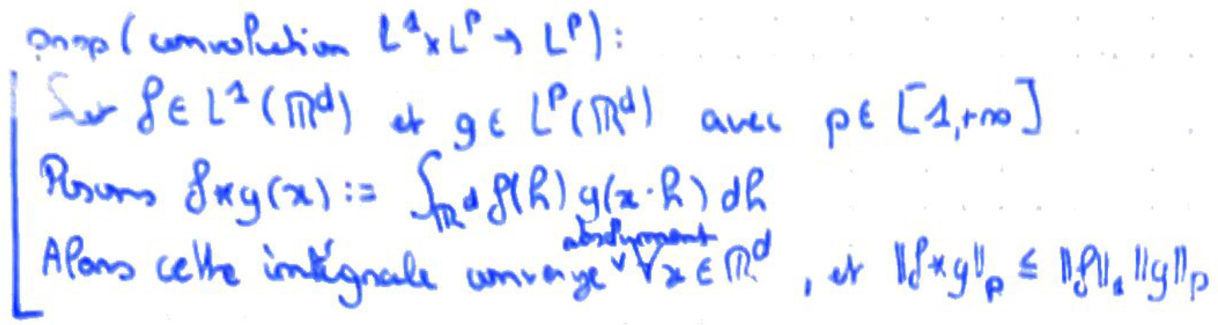 prop (convolution L¹×Lᵖ → Lᵖ):
Soit f ∈ L¹(ℝᵈ) et g ∈ Lᵖ(ℝᵈ) avec p ∈ [1,+∞]
Posons f*g(x) := ∫_ℝᵈ f(h) g(x-h) dh
Alors cette intégrale converge absolument ∀x ∈ ℝᵈ, et ‖f*g‖ₚ ≤ ‖f‖₁ ‖g‖ₚ